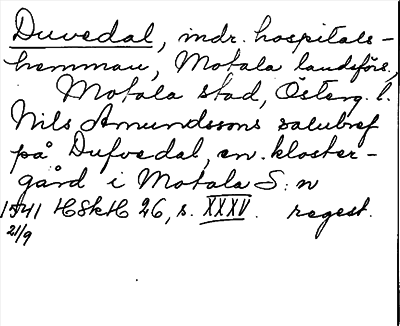 Duvedal, indr. hospitals-
hemman, Motala landsförs.,
Motala stad, Österg. l.
Nils Amundssons salubref
på Dufvedal, en kloster-
gård i Motala S:n
1541 HSkH 26, s. XXXV. regest.
21/9